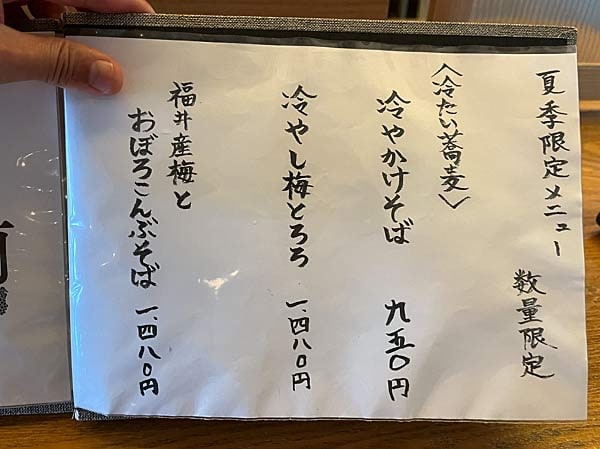 夏季限定メニュー
数量限定
〈冷たい蕎麦〉
冷やかけそば 九五〇円
冷やし梅とろろ 一、四八〇円
福井産梅と
おぼろこんぶそば 一、四八〇円